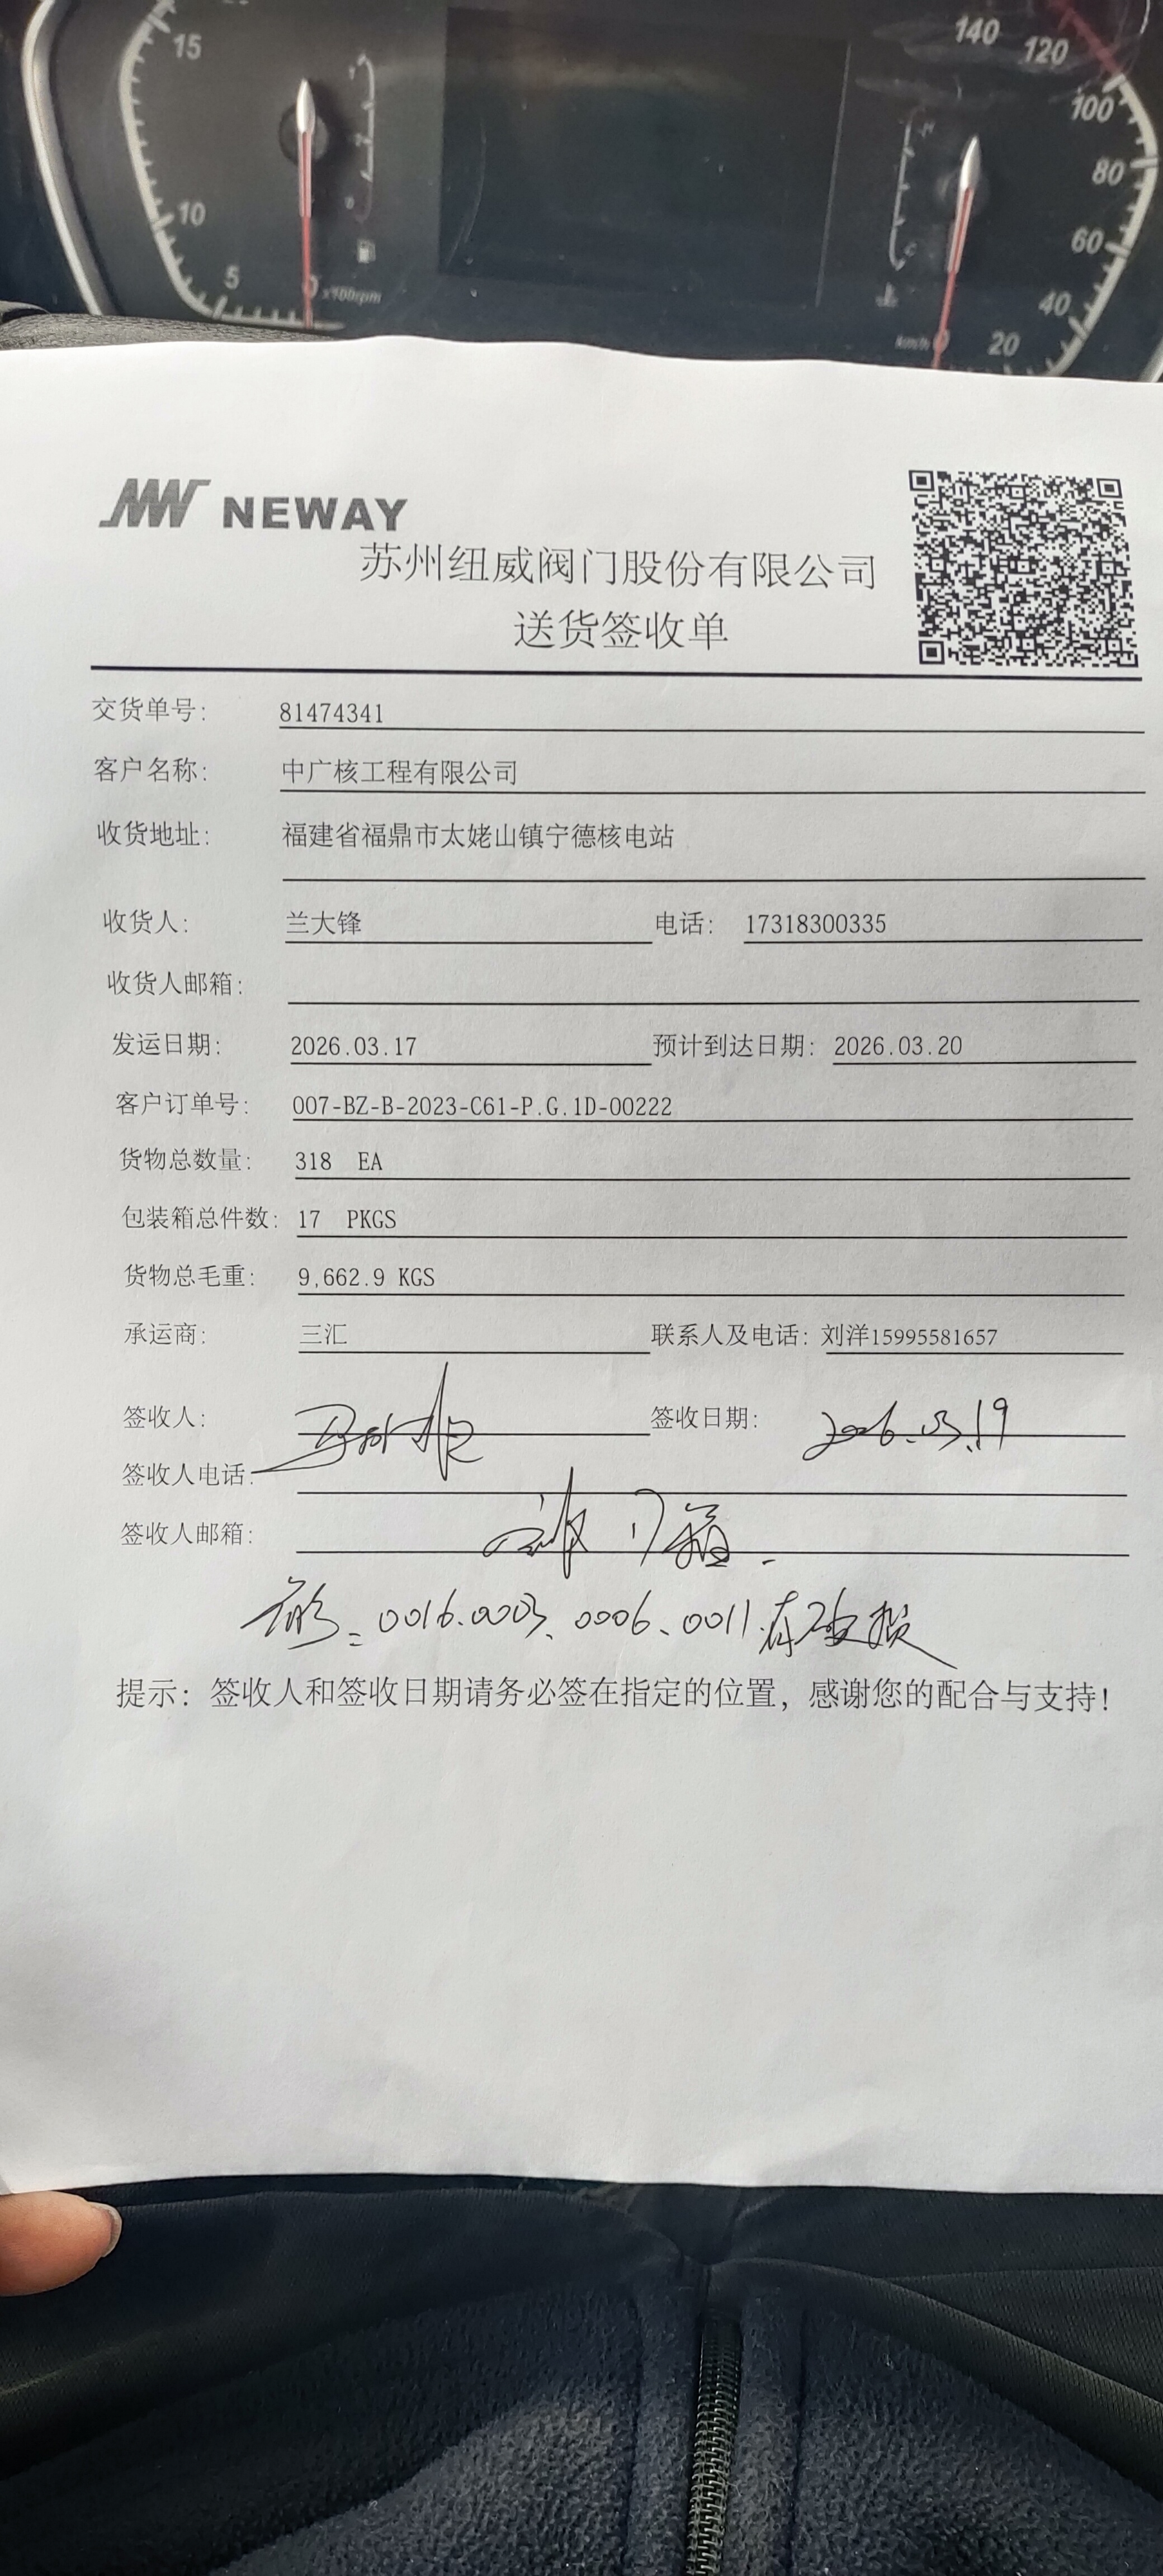 15
140 120
100
80
10
60
5
40
0 x100rpm
km/h 0 20
NEWAY
苏州纽威阀门股份有限公司
送货签收单
交货单号: 81474341
客户名称: 中广核工程有限公司
收货地址: 福建省福鼎市太姥山镇宁德核电站
收货人: 兰大锋 电话: 17318300335
收货人邮箱:
发运日期: 2026.03.17 预计到达日期: 2026.03.20
客户订单号: 007-BZ-B-2023-C61-P.G.1D-00222
货物总数量: 318 EA
包装箱总件数: 17 PKGS
货物总毛重: 9,662.9 KGS
承运商: 三汇 联系人及电话: 刘洋15995581657
签收人: 签收日期: 2026.03.19
签收人电话:
签收人邮箱:
0016.0003、0006、0011.有破损
提示: 签收人和签收日期请务必签在指定的位置, 感谢您的配合与支持!